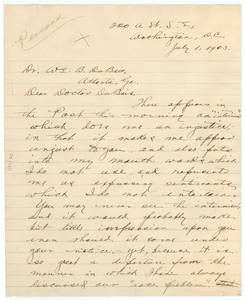 Personal
200 A St. S. E.,
Washington, D.C.
July 1, 1903.
Dr. W. E. B. DuBois,
Atlanta, Ga.
Dear Doctor DuBois:
There appears in
the Post this morning an "interview"
which does me an injustice,
in that it makes me appear
unjust to you and also puts
into my mouth words which
I do not use and represents
me as expressing sentiments
which I do not entertain.
You may never see the interview,
and it would probably make
but little impression upon you
even should it come under
your notice; yet, because it is
so great a departure from the
manner in which I have always
discussed our "race problem"